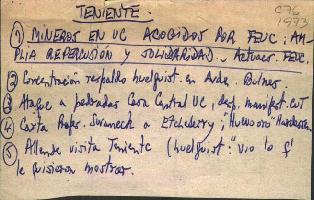 TENIENTE.
C76
1973
① MINEROS EN UC ACOGIDOS POR FEUC; AM-
PLIA REPERCUSIÓN Y SOLIDARIDAD. Actuac. FEUC.
② Concentración respaldo huelguist. en Avda. Bulnes
③ Ataque a pedradas Casa Central UC, desp. manifest. CUT
④ Carta Profes. a Etcheberry;
⑤ Allende visita Teniente (huelguist: "vio lo q'
le quisieron mostrar.